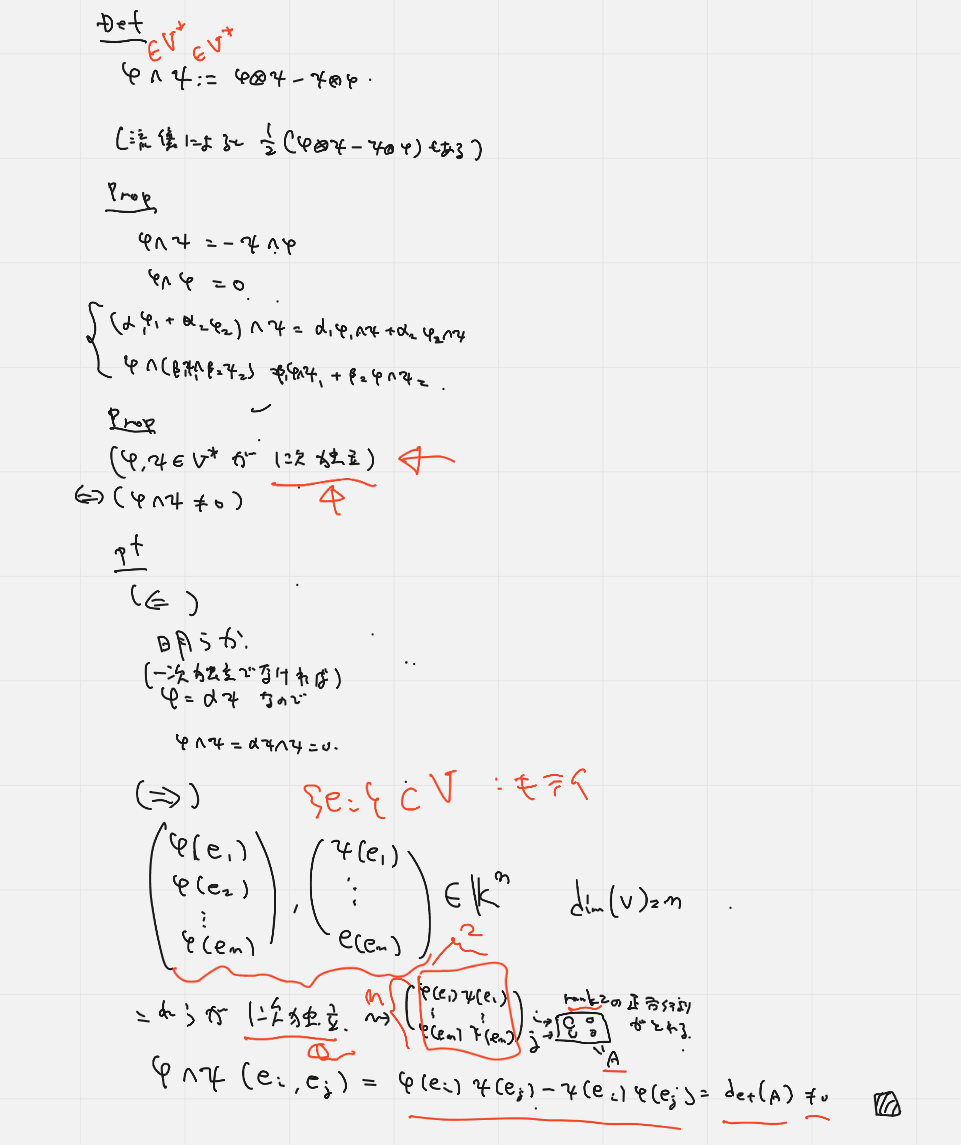 Def
∈V* ∈V*
φ∧ψ := φ⊗ψ − ψ⊗φ.
(流儀によると 1/2(φ⊗ψ − ψ⊗φ)もある)
Prop
φ∧ψ = −ψ∧φ
φ∧φ = 0
(α₁φ₁ + α₂φ₂)∧ψ = α₁φ₁∧ψ + α₂φ₂∧ψ
φ∧(β₁ψ₁∧β₂ψ₂) = β₁φ∧ψ₁ + β₂φ∧ψ₂.
Prop
(φ,ψ∈V* が 1次独立)
⇔(φ∧ψ ≠ 0)
pf
(⇐)
明らか.
(一次独立でなければ)
φ = αψ なので
φ∧ψ = αψ∧ψ = 0.
(⇒)
{eᵢ} ⊂ V : 基底
(φ(e₁) φ(e₂) ⋮ φ(eₙ)), (ψ(e₁) ⋮ e(eₙ)) ∈ 𝕂ⁿ dim(V)=n
2
これらが 1次独立. ⇝ n (φ(e₁) ψ(e₁) ⋮ ⋮ φ(eₙ) ψ(eₙ)) i→ j→ rank2の正方行列がとれる.
A
φ∧ψ(eᵢ,eⱼ) = φ(eᵢ)ψ(eⱼ) − ψ(eᵢ)φ(eⱼ) = det(A) ≠ 0